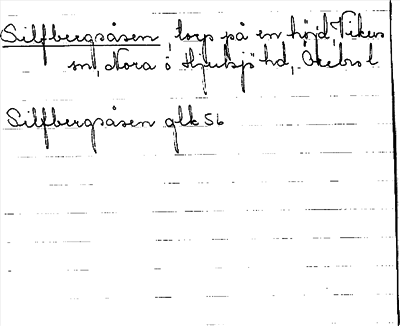 Silfbergsåsen, torp på en höjd, Vikers
sn, Nora o Hjulsjö hd, Örebro l
Silfbergsåsen glk 56